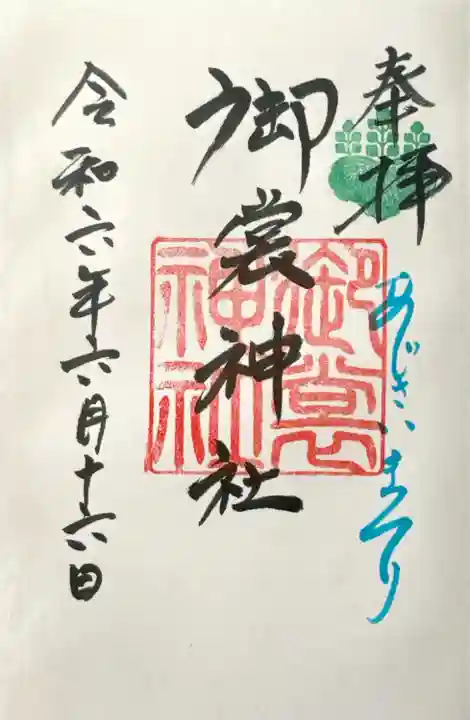 奉拝
あじさいまつり
御裳神社
御裳
神社
令和六年六月十六日